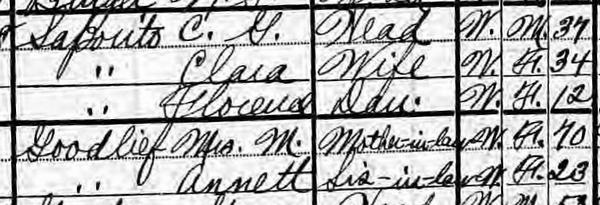 Saporito C. G. Head W. M. 37
" Clara Wife W. F. 34
" Florence Dau. W. F. 12
Goodlief Mrs. M. Mother-in-law W. F. 70
" Annett Sis-in-law W. F. 23